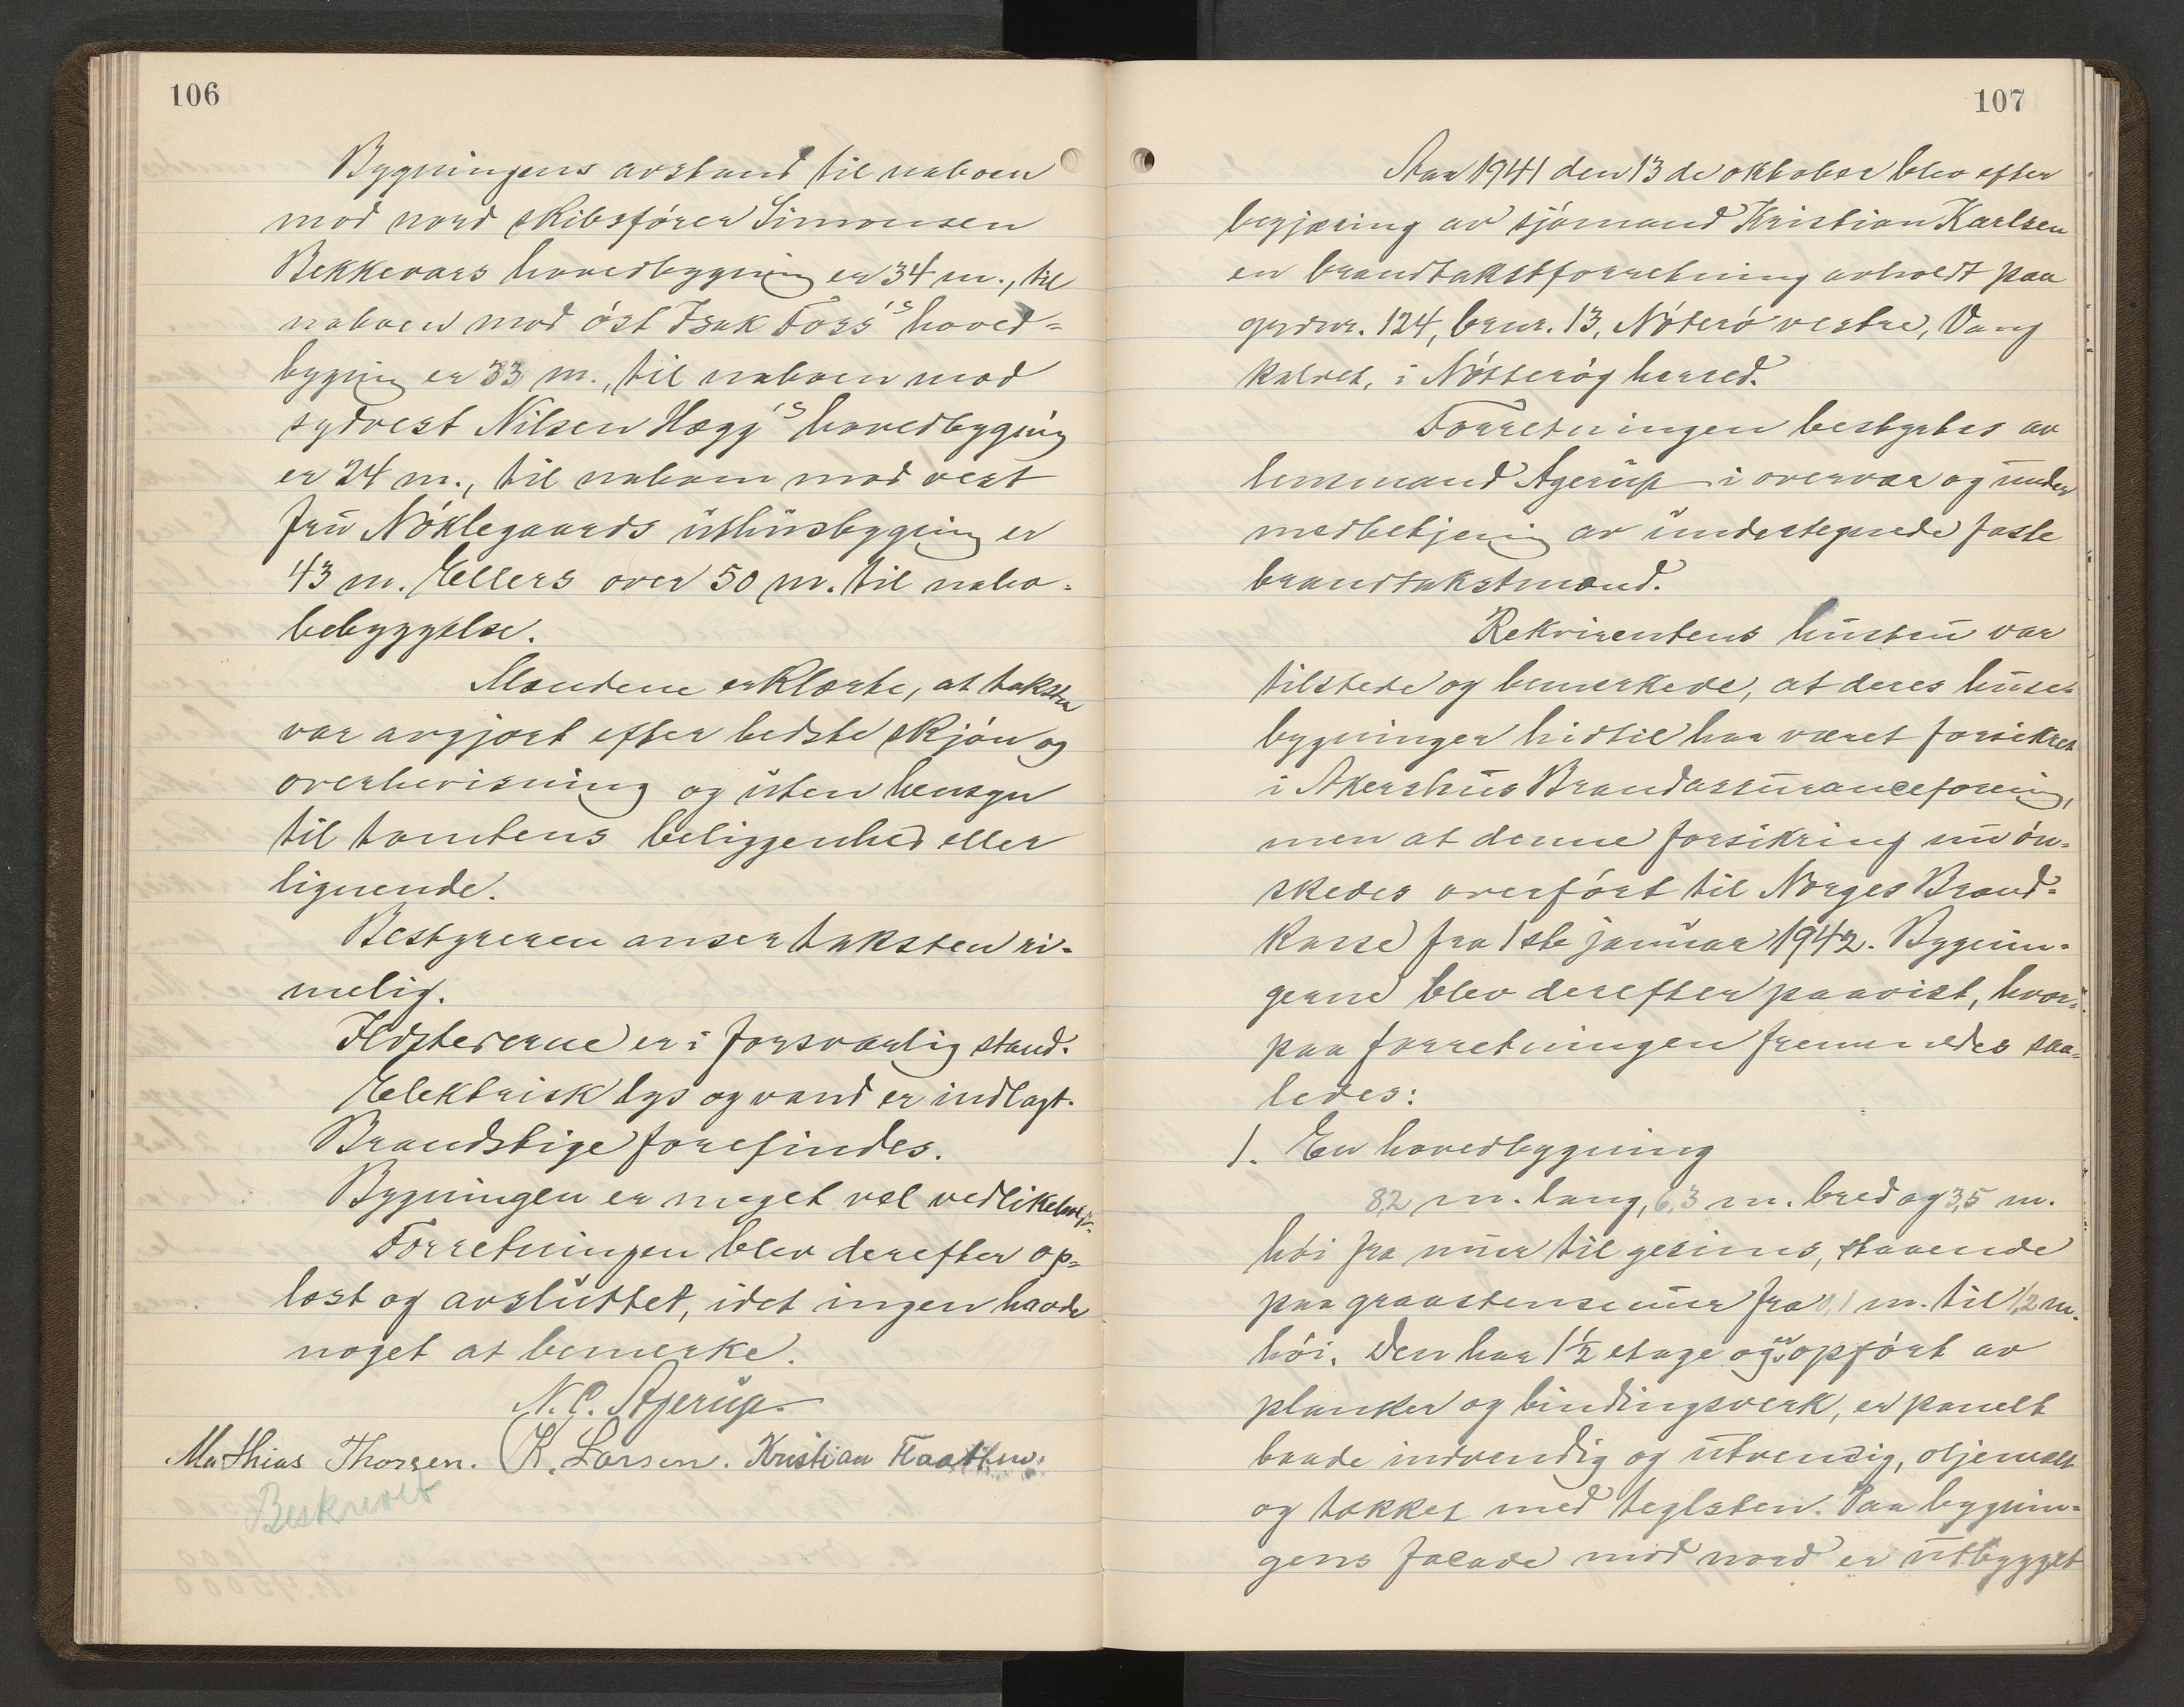 106
Bygningens avstand til naboen
mod nord skibsfører Simonsen
Bekkevars hovedbygning er 34 m., til
naboen mod øst Isak Foss's hoved=
bygning er 33 m., til naboen mod
sydvest Nilsen Hægg's hovedbygning
er 24 m., til naboen mod vest
fru Nøklegaards uthusbygning er
43 m. Ellers over 50 m. til nabo=
bebyggelse.
Mændene erklærte, at taksten
var avgjort efter bedste skjøn og
overbevisning og uten hensyn
til tomtens beliggenhed eller
lignende.
Bestyreren anser taksten ri=
melig.
Ildstederne er i forsvarlig stand.
Elektrisk lys og vand er indlagt.
Brandstige forefindes.
Bygningen er meget vel vedlikeholdt.
Forretningen blev derefter op=
læst og avsluttet, idet ingen havde
noget at bemerke.
N. C. Agerup.
Mathias Thorsen. K. Larsen. Kristian Flaatten.
Beskrevet
107
Aar 1941 den 13de oktober blev efter
begjæring av sjømand Kristian Karlsen
en brandtakstforretning avholdt paa
grdnr. 124, brnr. 13, Nøterø vestre, Vang
kaldet, i Nøtterøy herred.
Forretningen bestyrtes av
lensmand Agerup i overvær og under
medbetjening av undertegnede faste
brandtakstmænd.
Rekvirentens hustru var
tilstede og bemerkede, at deres huse=
bygninger hidtil har været forsikret
i Akershus Brandassuranceforening,
men at denne forsikring nu øn=
skedes overført til Norges Brand=
kasse fra 1ste januar 1942. Bygnin=
gerne blev derefter paavist, hvor=
paa forretningen fremmedes saa=
ledes:
1. En hovedbygning
8,2 m. lang, 6,3 m. bred og 3,5 m.
høi fra mur til gesims, staaende
paa graastensmur fra 0,1 m. til 1,2 m.
høi. Den har 1½ etage og er opført av
planker og bindingsverk, er panelt
baade indvendig og utvendig, oljemalt
og tækket med teglsten. Paa bygnin=
gens facade mod nord er utbygget